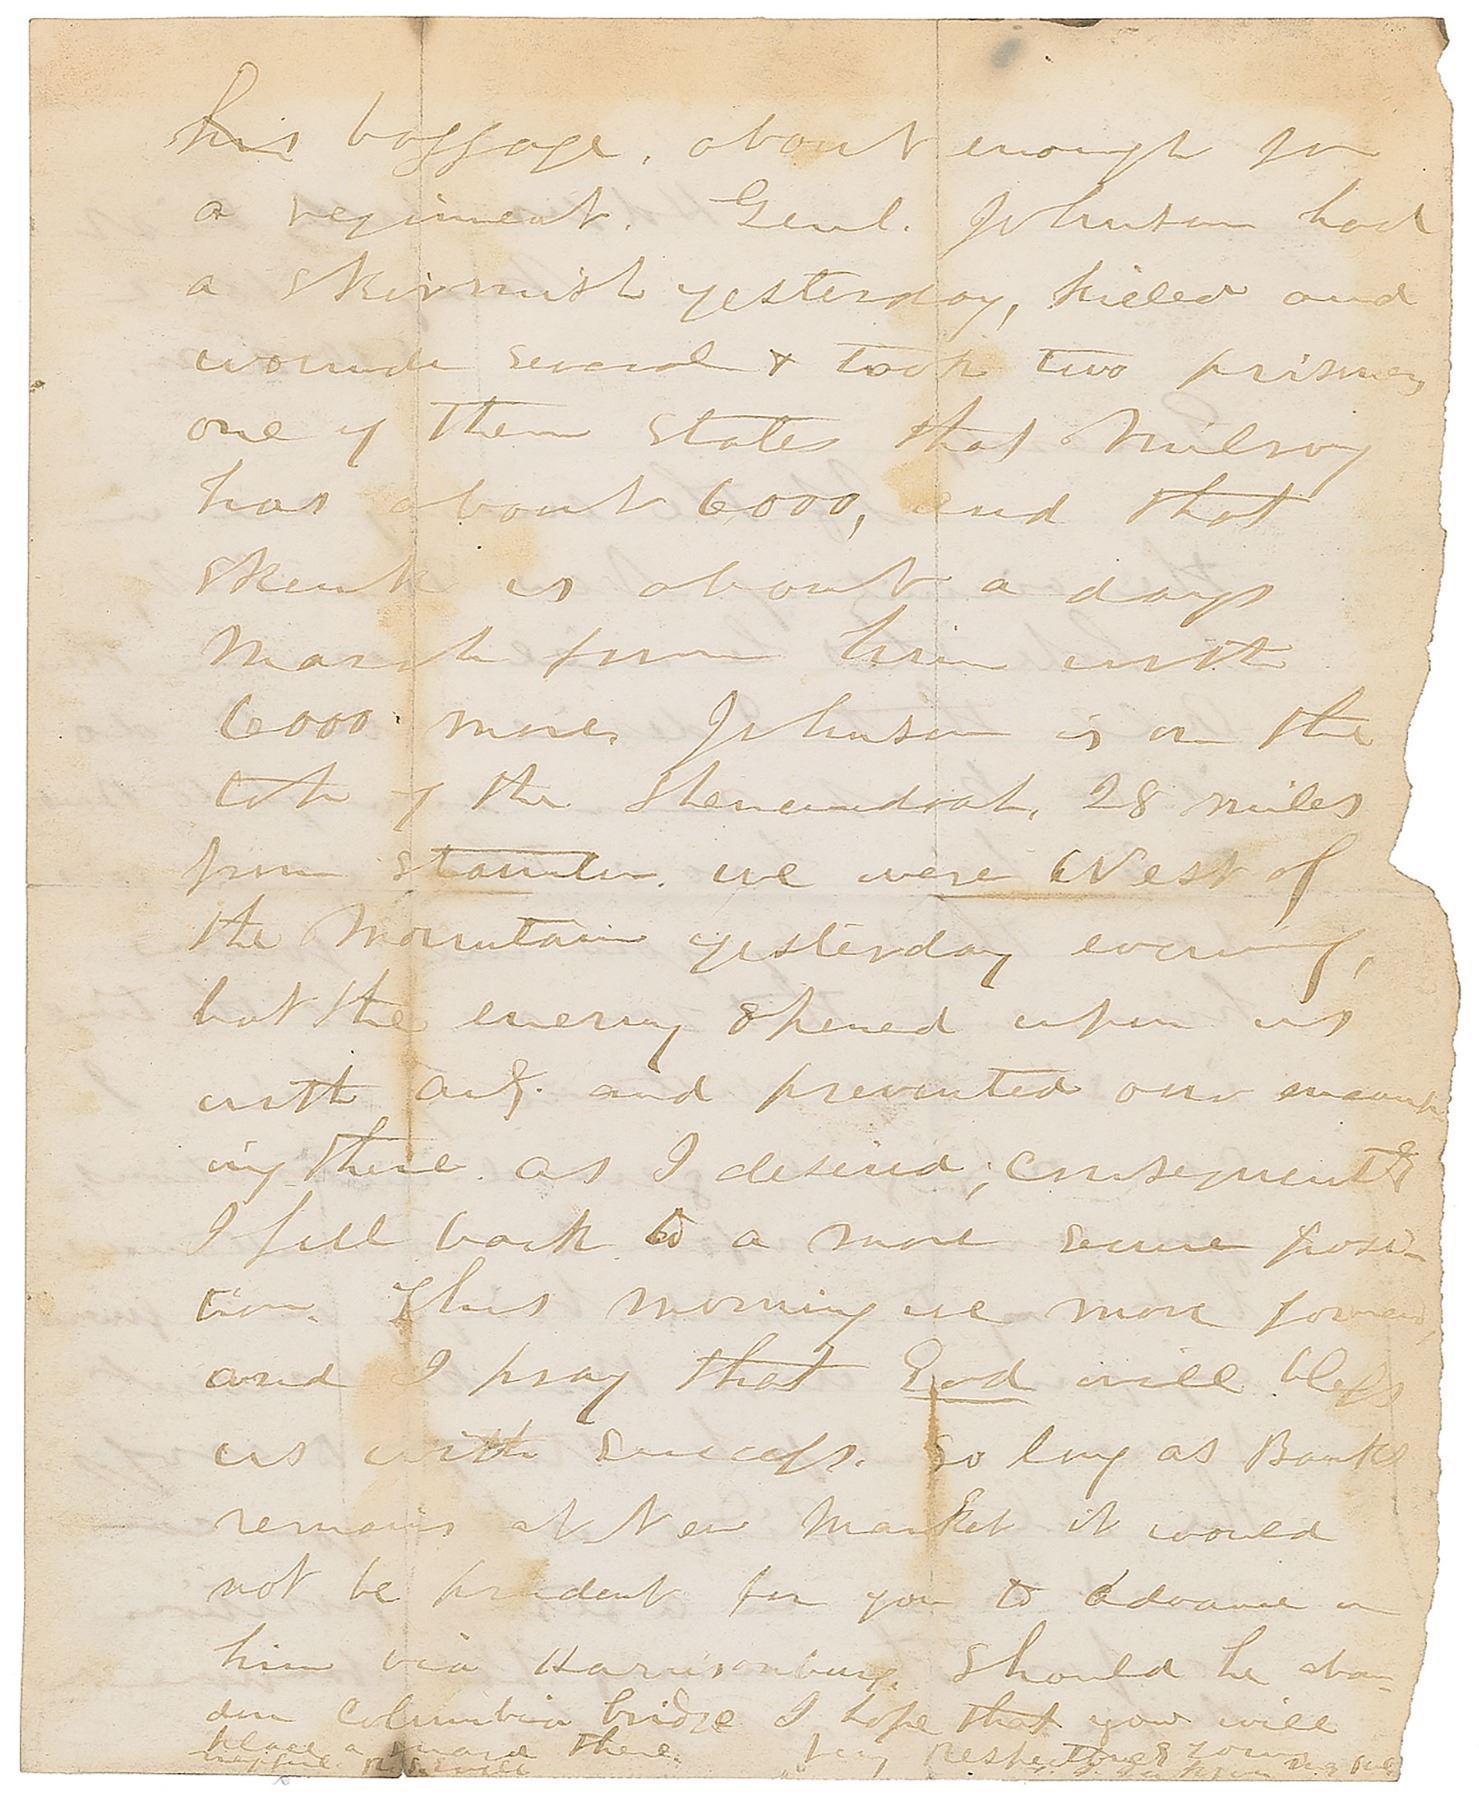 his baggage, about enough for
a regiment. Genl. Johnson had
a skirmish yesterday, killed and
wounde several & took two prisoners
one of them states that Milroy
has about 6000, and that
Skenk is about a days
march from him with
6000 more, Johnson is on the
of the Shenandoah, 28 miles
from Staunton. we were West of
the Mountain yesterday evening,
but the enemy opened upon us
with art. and prevented our encamp
ing there as I desired; consequently
I fell back to a more secure posi-
tion. This morning we move forward,
and I pray that God will bless
us with success. So long as Banks
remains at New Market it would
not be prudent for you to advance on
him via Harrisonburg. Should he aban-
don Columbia bridge I hope that you will
place a guard there. Very Respectfully yours